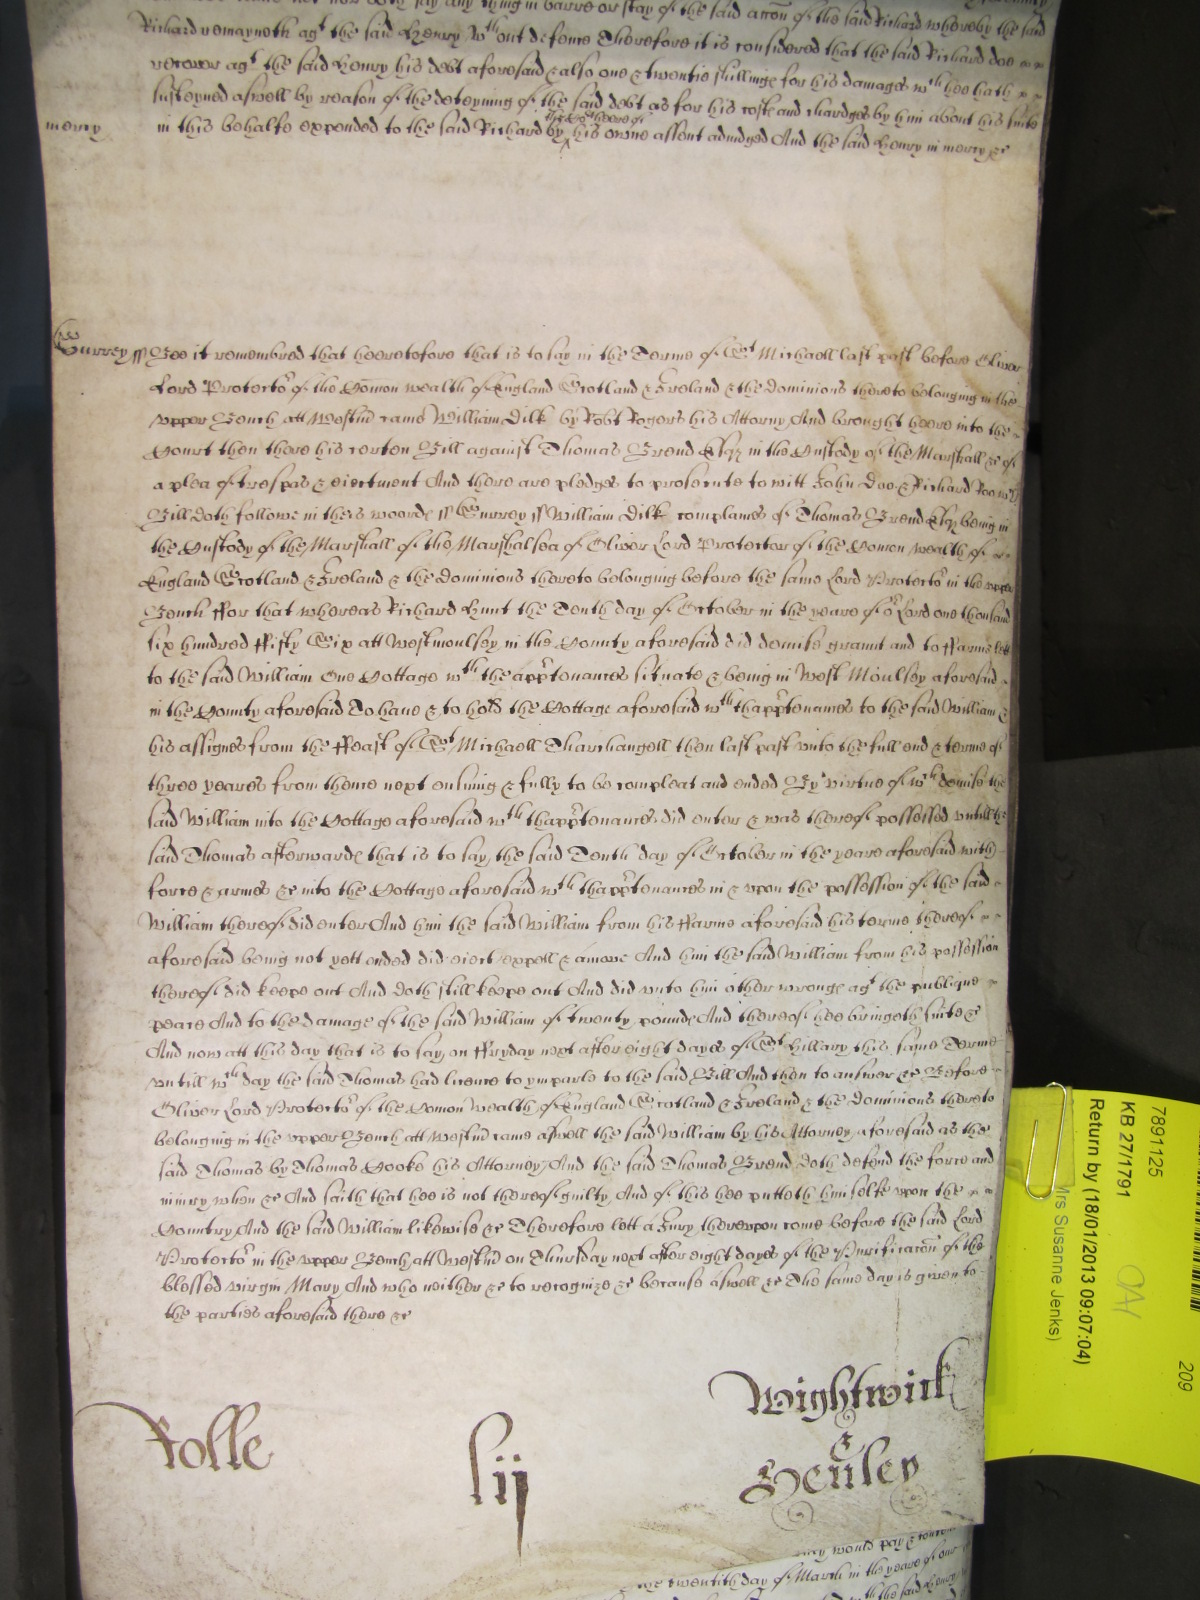 not nor doth say any thing in barre or stay of the said accon of the said Richard whereby the said
Richard remayneth agt the said Henry wthout defence Therefore it is considered that the said Richard doe
recover agt the said Henry his debt aforesaid & also one & twentie shillings for his damages wch hee hath
susteyned aswell by reason of the deteyning of the said debt as for his costs and chardges by him about his suite
mercy in this behalfe expended to the said Richard by the Cort heere of his owne assent adiudged And the said Henry in mercy &c
Surrey ss Bee it remembred that heeretofore that is to say in the Terme of St Michaell last past before Oliver
Lord Protector of the Comon wealth of England Scotland & Ireland & the dominions thereto belonging in the
vpper Bench att Westmr came William Dilk by Robt Rogers his Attorny And brought heere into the
Court then there his certen Bill against Thomas Brend Esqr in the Custody of the Marshall &c of
a plea of trespas & eiectment And there are pledges to prosecute to witt John Doe & Richard Roe wch
Bill doth followe in theis words ss Surrey ss William Dilk complaines of Thomas Brend Esqr being in
the Custody of the Marshall of the Marshalsea of Oliver Lord Protector of the Comon wealth of
England Scotland & Ireland & the dominions thereto belonging before the same Lord Protector in the vpper
Bench ffor that whereas Richard Hunt the Tenth day of October in the yeare of or Lord one thousand
six hundred ffifty Six att Westmoulsey in the County aforesaid did demise graunt and to ffarme lett
to the said William One Cottage wth the apprtenances situate & being in West Moulsey aforesaid
in the County aforesaid To have & to hold the Cottage aforesaid wth thapprtenances to the said William &
his assignes from the ffeast of St Michaell Tharchangell then last past vnto the full end & terme of
three yeares from thence next ensuing & fully to be compleat and ended By virtue of wch demise the
said William into the Cottage aforesaid wth thapprtenances did enter & was thereof possessed vntill the
said Thomas afterwards that is to say the said Tenth day of October in the yeare aforesaid with
force & armes &c into the Cottage aforesaid wth thapprtenances in & vpon the possession of the said
William thereof did enter And him the said William from his ffarme aforesaid his terme thereof
aforesaid being not yett ended did eiect expell & amove And him the said William from his possession
thereof did keepe out And doth still keepe out And did vnto him other wrongs agt the publique
peace And to the damage of the said William of twenty pounds And thereof hee bringeth suite &c
And now att this day that is to say on ffryday next after eight dayes of St Hillary this same Terme
vntill wch day the said Thomas had licence to ymparle to the said Bill And then to answer &c Before
Oliver Lord Protector of the Comon wealth of England Scotland & Ireland & the Dominions thereto
belonging in the vpper Bench att Westmr came aswell the said William by his Attorney aforesaid as the
said Thomas by Thomas Cooke his Attorney And the said Thomas Brend doth defend the force and
iniury when &c And saith that hee is not thereof guilty And of this hee putteth him selfe vpon the
Country And the said William likewise &c Therefore lett a Jury therevpon come before the said Lord
Protector in the vpper Bench att Westmr on Thursday next after eight dayes of the Purificacon of the
blessed virgin Mary And who neither &c to recognize &c because aswell &c The same day is given to
the parties aforesaid there &c
Wightwick
Rolle lij &
may would pay &
twentith day of March in the yeare of our
the said Henry
7891125
KB 27/1791
Return by (18/01/2013 09:07:04)
Mrs Susanne Jenks)
209